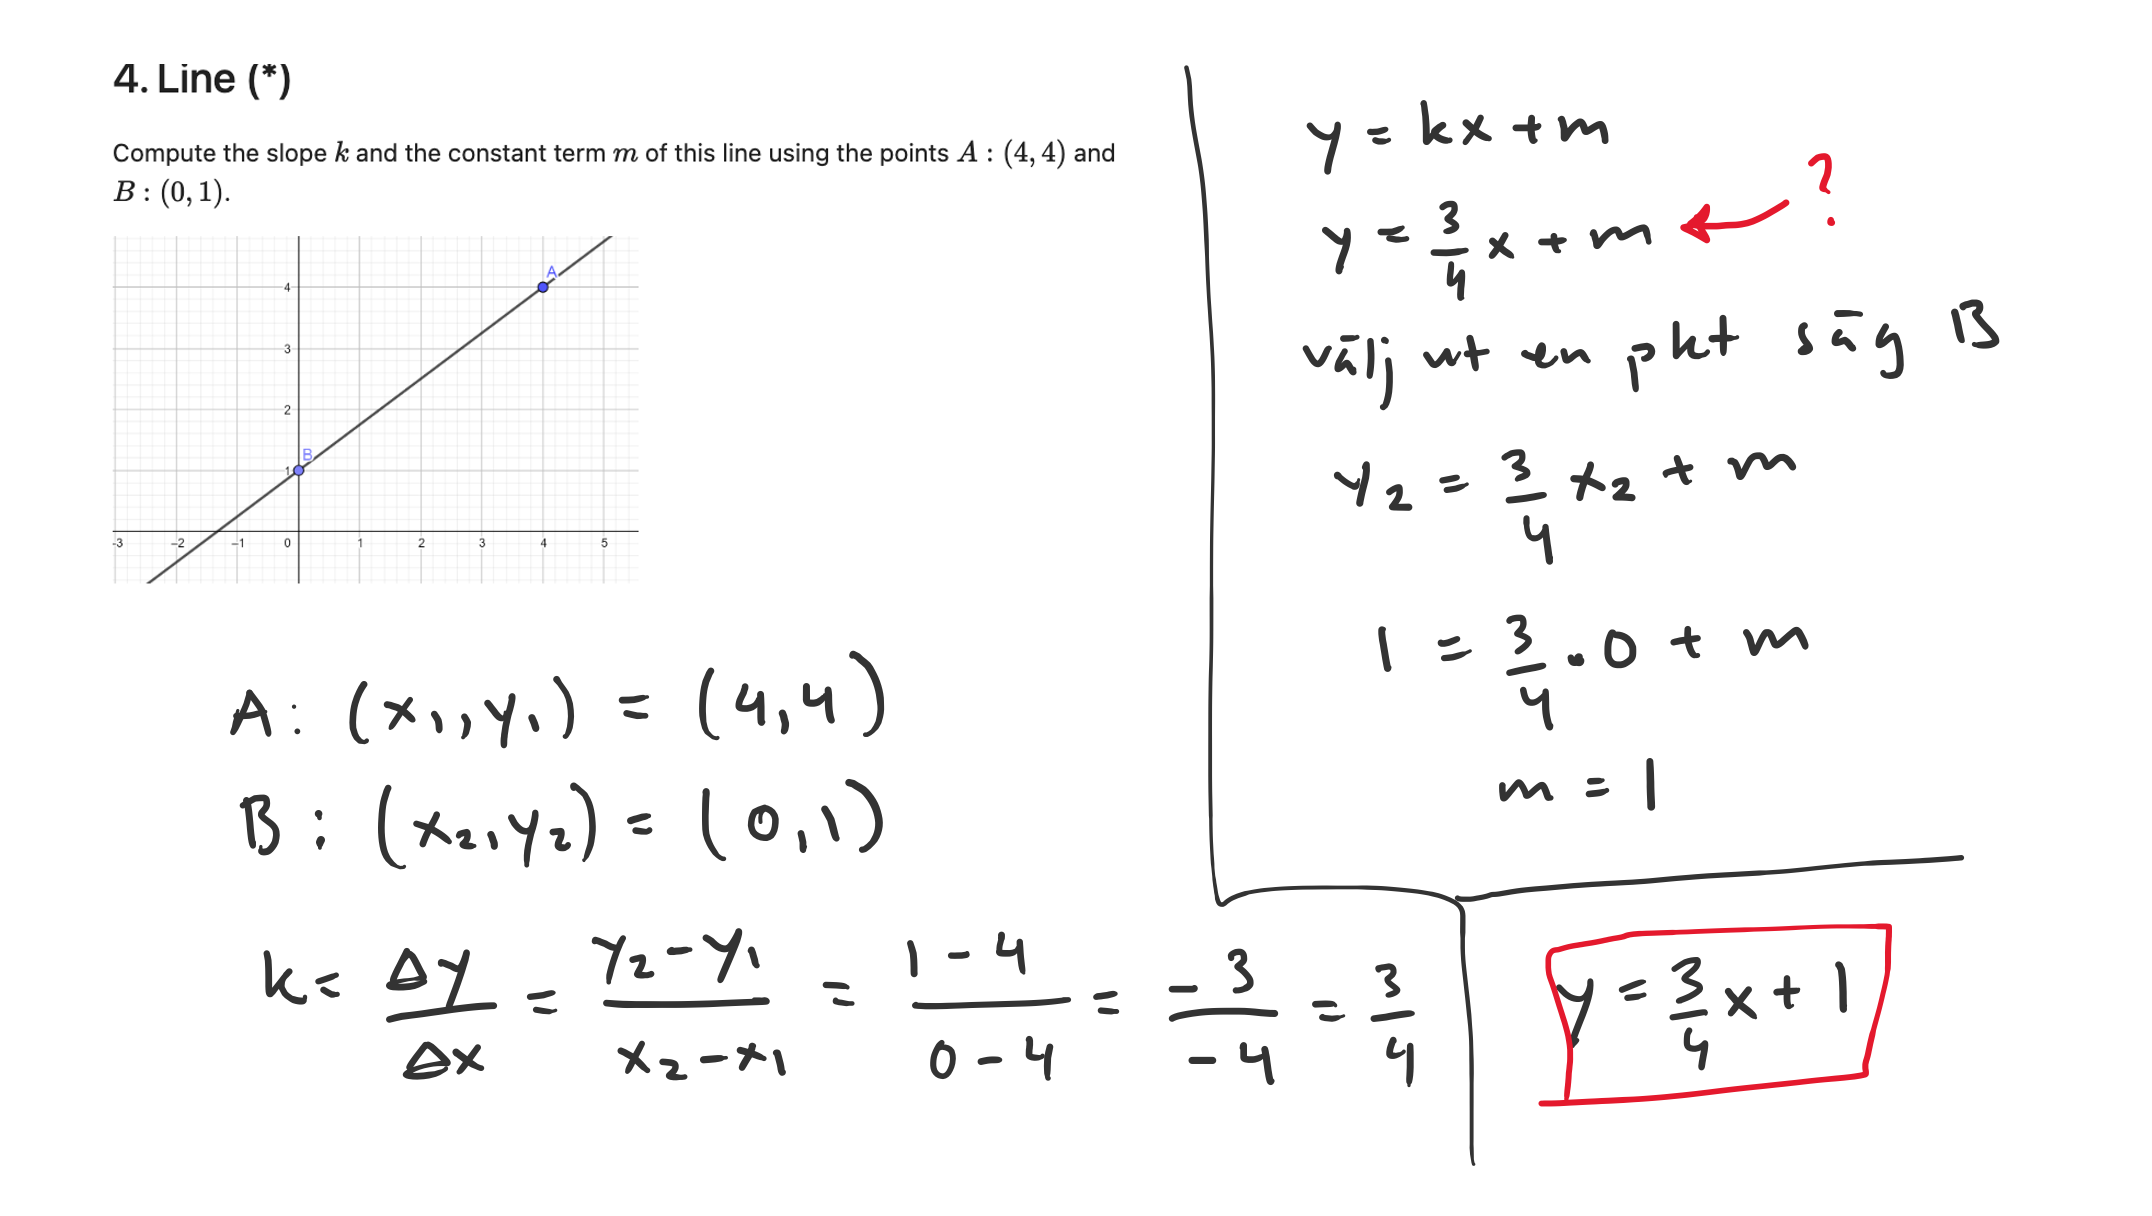 4. Line (*)
Compute the slope k and the constant term m of this line using the points A : (4, 4) and
B : (0, 1).
A
4
3
2
B
1
-3 -2 -1 0 1 2 3 4 5
A: (x₁, y₁) = (4, 4)
B: (x₂, y₂) = (0, 1)
k = Δy/Δx = (y₂ - y₁)/(x₂ - x₁) = (1 - 4)/(0 - 4) = -3/-4 = 3/4
y = kx + m
?
y = 3/4 x + m
välj ut en pkt säg B
y₂ = 3/4 x₂ + m
1 = 3/4 · 0 + m
m = 1
y = 3/4 x + 1